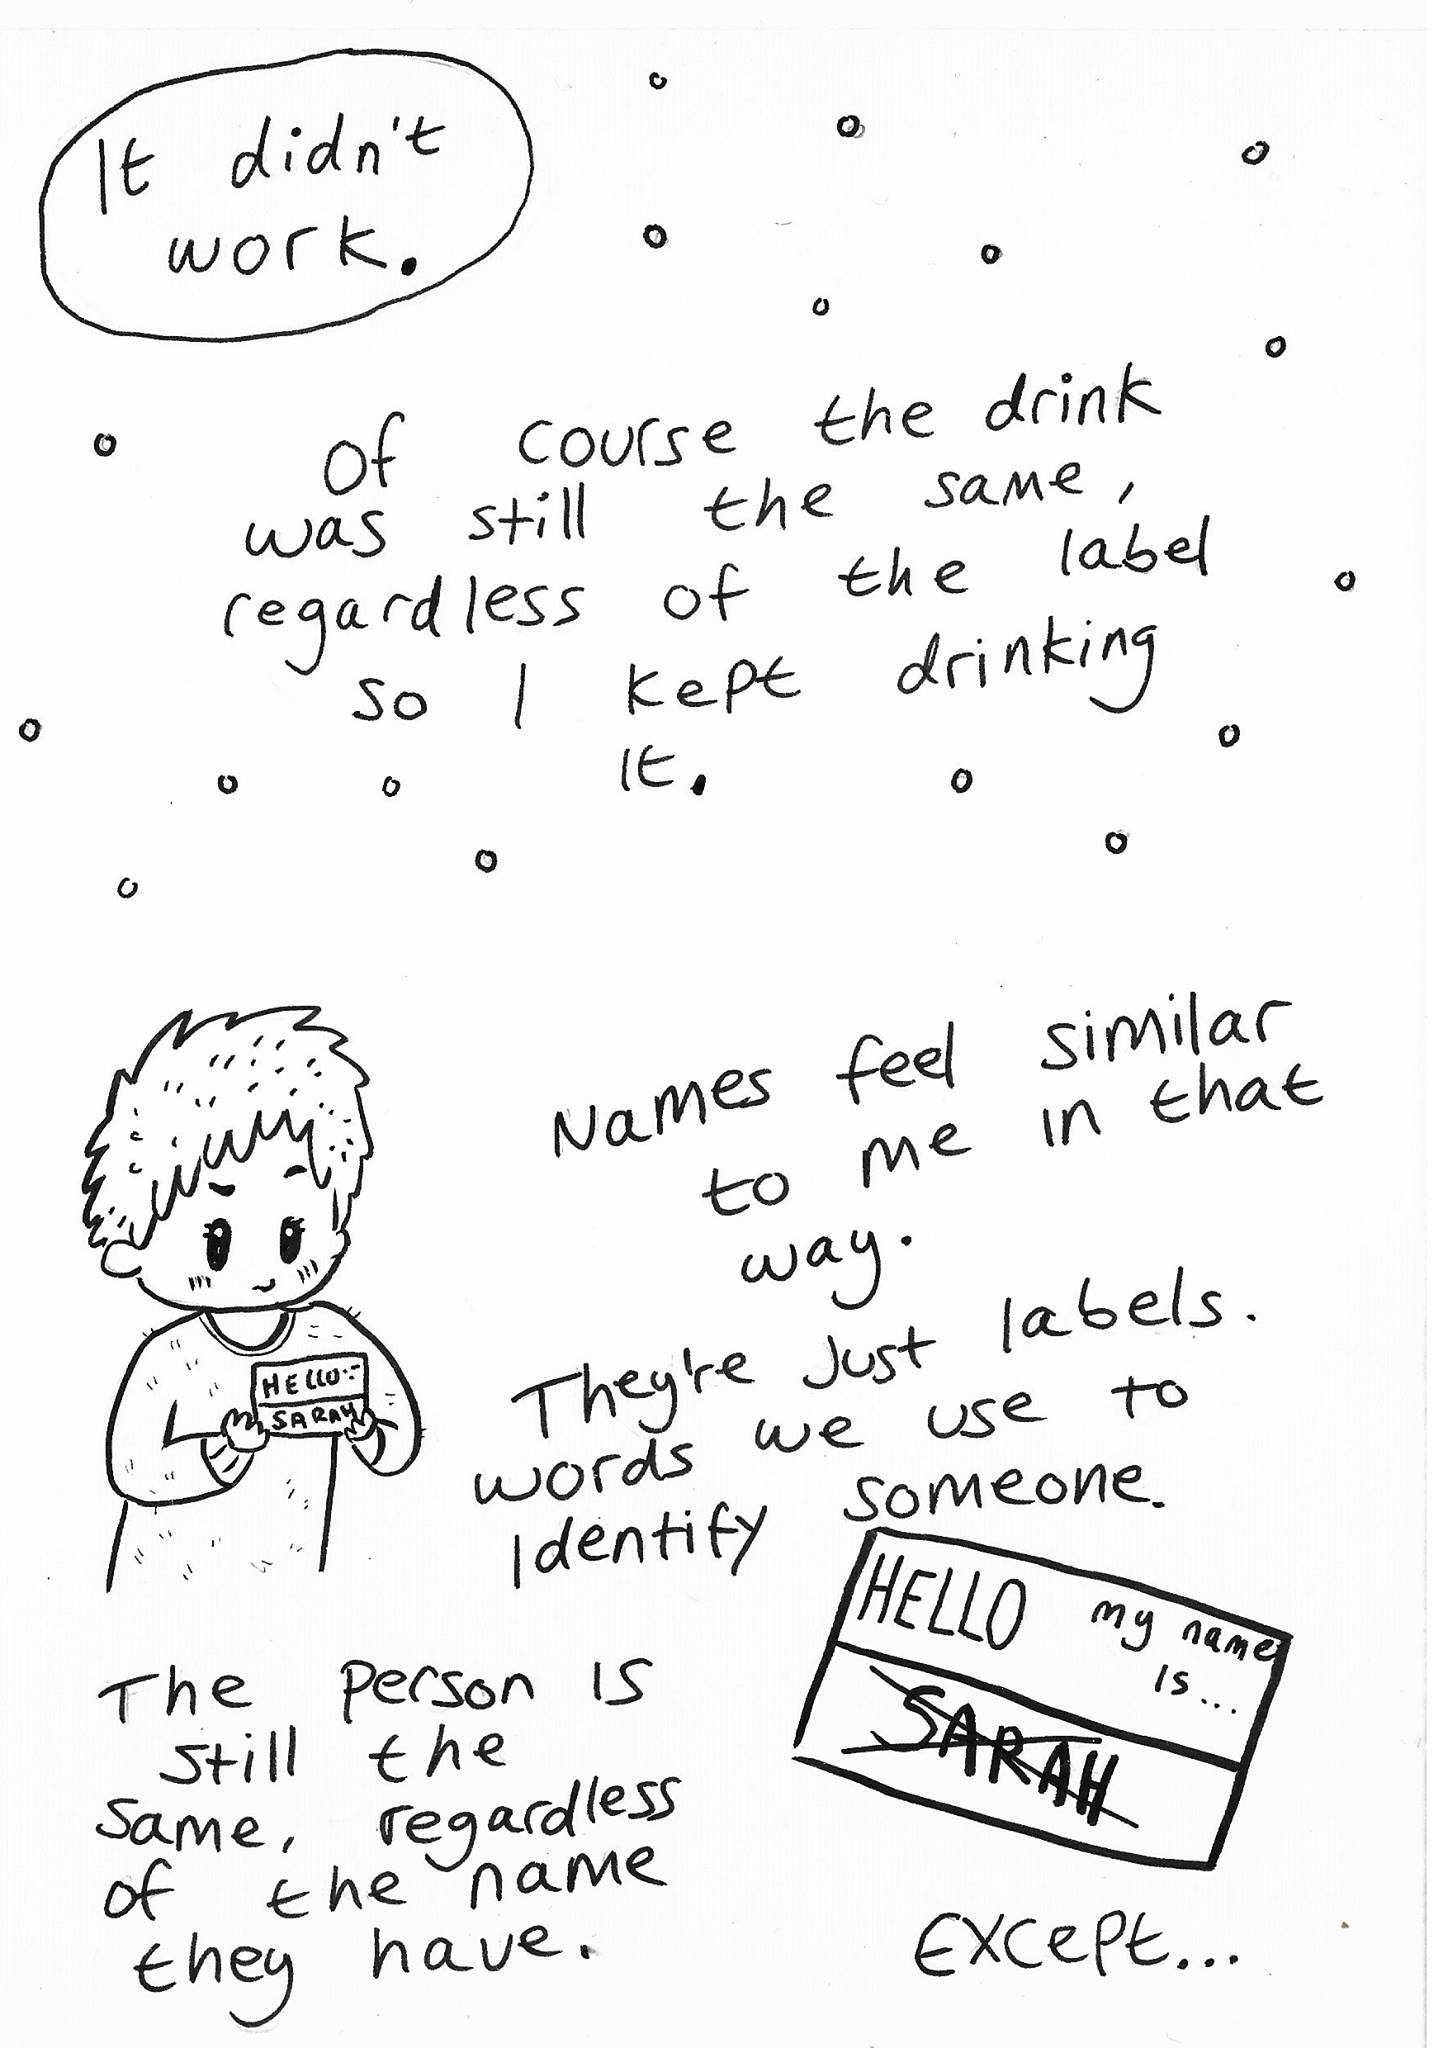 It didn't
work.
Of course the drink
was still the same,
regardless of the label
so I kept drinking
It.
Names feel similar
to me in that
way.
They're Just labels.
words we use to
Identify someone.
HELLO:-
SARAH
HELLO my name
Is...
SARAH
The person is
still the
same, regardless
of the name
they have.
Except...